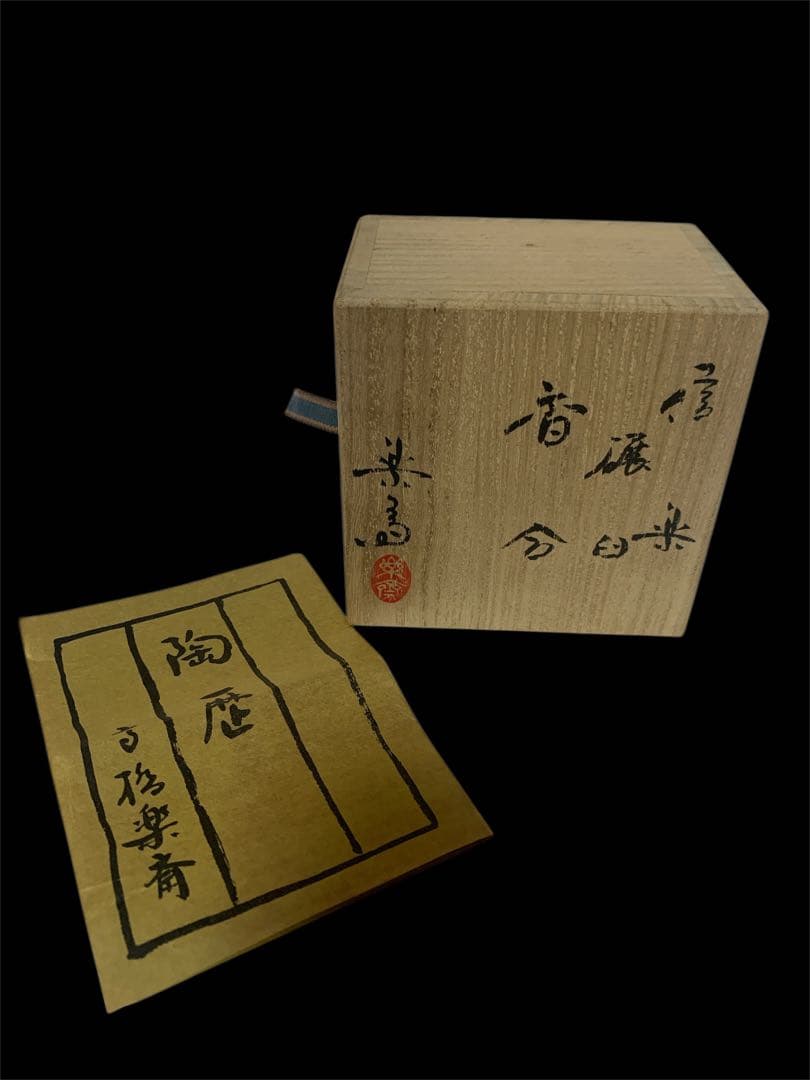 信楽
碾臼
香合
楽斎
陶歴
高橋楽斎